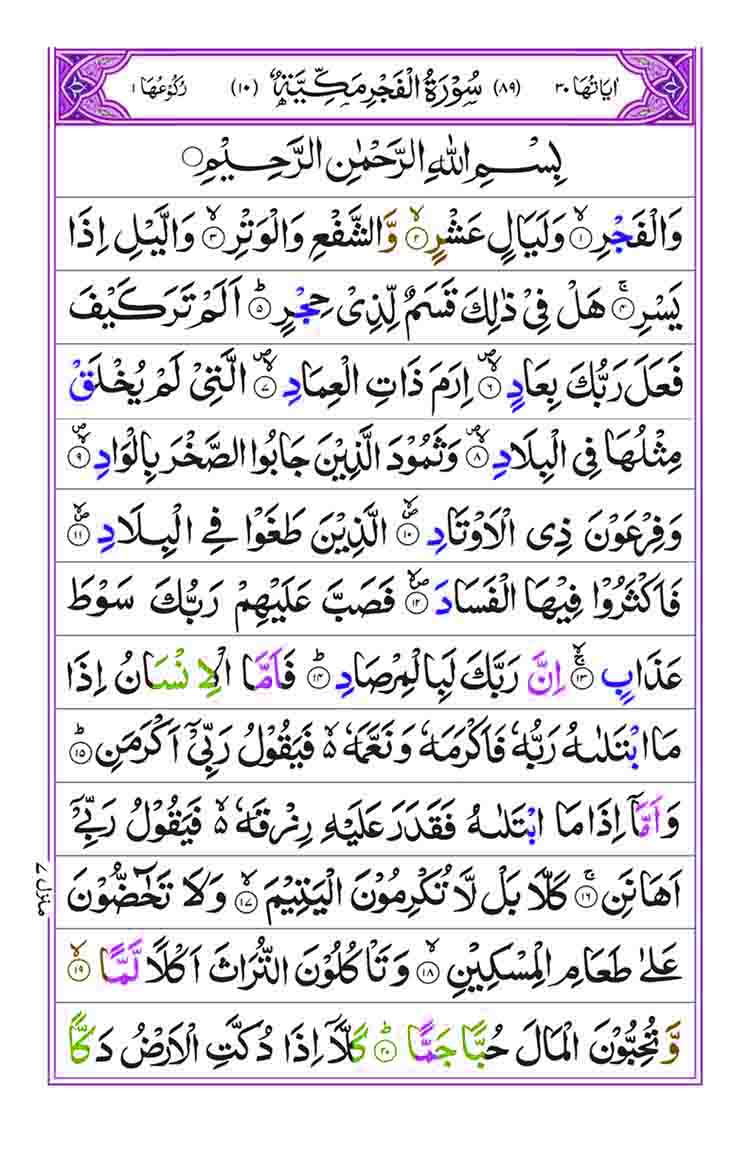 اٰيَاتُهَا ٣٠ (٨٩) سُوْرَةُ الْفَجْرِ مَكِّيَّةٌ (١٠) رُكُوْعُهَا ١
بِسْمِ اللّٰهِ الرَّحْمٰنِ الرَّحِيْمِ ۝
وَالْفَجْرِ ۙ﴿١﴾ وَلَيَالٍ عَشْرٍ ۙ﴿٢﴾ وَّالشَّفْعِ وَالْوَتْرِ ۙ﴿٣﴾ وَالَّيْلِ اِذَا
يَسْرِ ۚ﴿٤﴾ هَلْ فِيْ ذٰلِكَ قَسَمٌ لِّذِيْ حِجْرٍ ؕ﴿٥﴾ اَلَمْ تَرَ كَيْفَ
فَعَلَ رَبُّكَ بِعَادٍ ۪ۙ﴿٦﴾ اِرَمَ ذَاتِ الْعِمَادِ ۪ۙ﴿٧﴾ الَّتِيْ لَمْ يُخْلَقْ
مِثْلُهَا فِي الْبِلَادِ ۪ۙ﴿٨﴾ وَثَمُوْدَ الَّذِيْنَ جَابُوا الصَّخْرَ بِالْوَادِ ۪ۙ﴿٩﴾
وَفِرْعَوْنَ ذِي الْاَوْتَادِ ۪ۙ﴿١٠﴾ الَّذِيْنَ طَغَوْا فِي الْبِلَادِ ۪ۙ﴿١١﴾
فَاَكْثَرُوْا فِيْهَا الْفَسَادَ ۪ۙ﴿١٢﴾ فَصَبَّ عَلَيْهِمْ رَبُّكَ سَوْطَ
عَذَابٍ ۚۙ﴿١٣﴾ اِنَّ رَبَّكَ لَبِالْمِرْصَادِ ؕ﴿١٤﴾ فَاَمَّا الْاِنْسَانُ اِذَا
مَا ابْتَلٰىهُ رَبُّهٗ فَاَكْرَمَهٗ وَنَعَّمَهٗ ۙ۬ فَيَقُوْلُ رَبِّيْۤ اَكْرَمَنِ ؕ﴿١٥﴾
وَاَمَّاۤ اِذَا مَا ابْتَلٰىهُ فَقَدَرَ عَلَيْهِ رِزْقَهٗ ۙ۬ فَيَقُوْلُ رَبِّيْۤ
اَهَانَنِ ۚ﴿١٦﴾ كَلَّا بَلْ لَّا تُكْرِمُوْنَ الْيَتِيْمَ ۙ﴿١٧﴾ وَلَا تَحٰٓضُّوْنَ
عَلٰى طَعَامِ الْمِسْكِيْنِ ۙ﴿١٨﴾ وَتَاْكُلُوْنَ التُّرَاثَ اَكْلًا لَّمًّا ۙ﴿١٩﴾
وَّتُحِبُّوْنَ الْمَالَ حُبًّا جَمًّا ؕ﴿٢٠﴾ كَلَّاۤ اِذَا دُكَّتِ الْاَرْضُ دَكًّا
منزل ٧